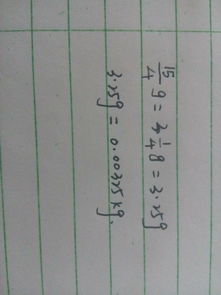 15/4 g = 3 1/4 g = 3.25g
3.25g = 0.00325kg.